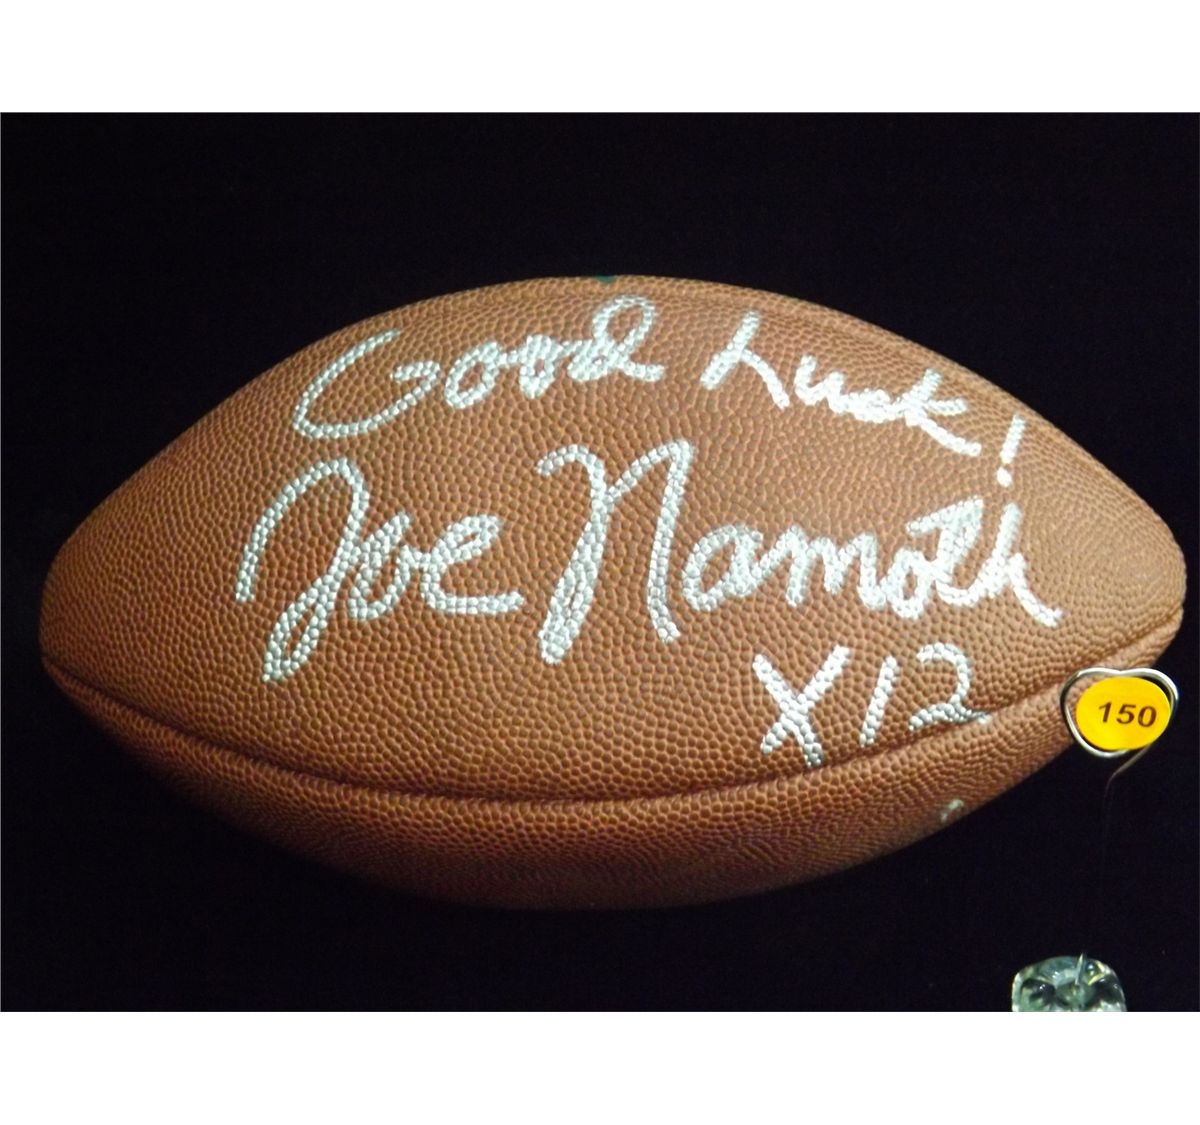 Good Luck!
Joe Namath
X12
150